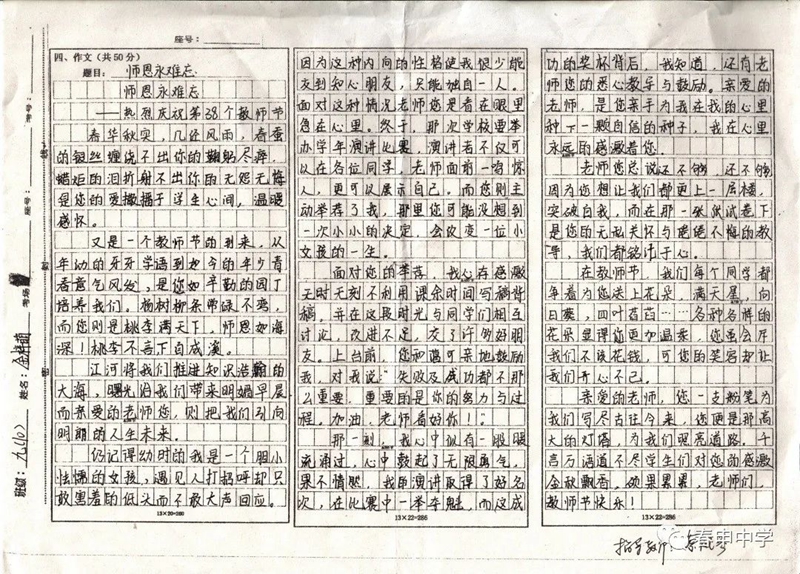 座号：
四、作文（共50分）
题目：师恩永难忘
师恩永难忘
——热烈庆祝第38个教师节
春华秋实，几经风雨，春蚕
的银丝缠绕不出你的鞠躬尽瘁，
蜡炬的泪折射不出你的无怨无悔
是您的爱撒播于学生心间，温暖
感怀。
又是一个教师节的到来，从
年幼的牙牙学语到如今的年少青
春意气风发，是您如辛勤的园丁
培养我们。杨树柳条带绿不变，
而您则是桃李满天下，师恩如海
深！桃李不言下自成溪。
江河将我们推进知识浩瀚的
大海，曙光给我们带来明媚早晨
而亲爱的老师您，则把我们引向
明朗的人生未来。
仍记得幼时的我是一个胆小
怯懦的女孩，遇见人打招呼却只
敢害羞的低头而不敢大声回应。
13×20-260
因为这种内向的性格使我很少能
交到知心朋友，只能独自一人。
面对这种情况老师您是看在眼里
急在心里。终于，那次学校要举
办学年演讲比赛，演讲者不仅可
以在各位同学，老师面前一鸣惊
人，更可以展示自己。而您则主
动举荐了我，那里您可能没想到
一次小小的决定，会改变一位小
女孩的一生。
面对您的举荐，我心存感激
无时无刻不利用课余时间写稿背
稿。并在这段时光与同学们相互
讨论，改进不足，交了许多好朋
友。上台前，您和蔼可亲地鼓励
我，对我说：“失败及成功都不那
么重要，重要的是你的努力与过
程。加油，老师看好你！”
那一刻，我心中似有一股暖
流涌过，心中鼓起了无限勇气，
果不情然，我的演讲取得了好名
次，在比赛中一举夺魁，而这成
13×22-286
功的奖杯背后，我知道，还有老
师您的悉心教导与鼓励。亲爱的
老师，是您亲手为我在我的心里
种下一颗自信的种子，我在心里
永远的感激着您。
老师您总说还不够，还不够
因为您想让我们都更上一层楼，
突破自我，而在那一张张试卷下
是您的无私关怀与谆谆不悔的教
导，我们都铭记于心。
在教师节，我们每个同学都
争着为您送上花朵，满天星，向
日葵，四叶苕苕……各种各样的
花朵显得您更加温柔，您虽会斥
我们不该花钱，可您的笑容却让
我们开心不已。
亲爱的老师，您一支粉笔为
我们写尽古往今来，您便是那高
大的灯塔，为我们照亮道路。千
言万语道不尽学生们对您的感激
金秋飘香，硕果累累，老师们，
教师节快乐！
13×22-286
指导教师：
春申中学
班级：九(10)
姓名：
考场
座号：